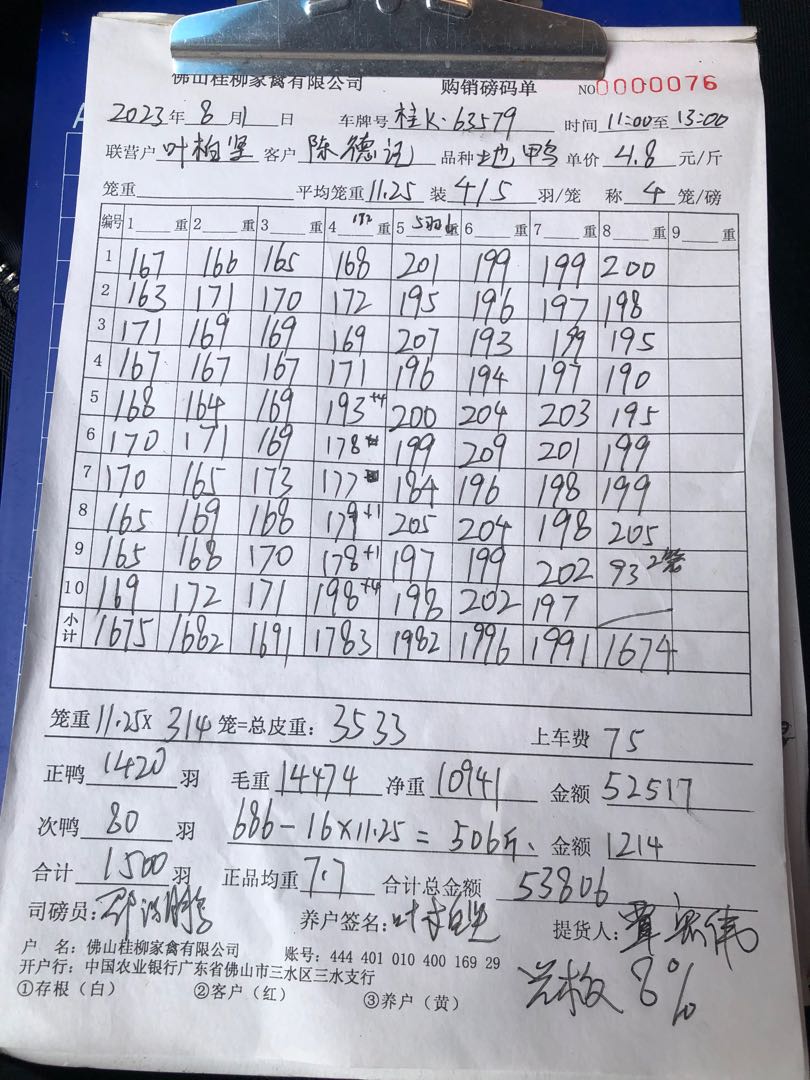 佛山桂柳家禽有限公司 购销磅码单 NO0000076
2023年 8月1日 车牌号 桂K·63579 时间 11:00至13:00
联营户 叶柏坚 客户 陈德记 品种 地鸭 单价 4.8 元/斤
笼重 平均笼重 11.25 装 4/5 羽/笼 称 4 笼/磅
编号 1 重 2 重 3 重 4 重 5 5羽 重 6 重 7 重 8 重 9 重
1 167 166 165 168 201 199 199 200
2 163 171 170 172 195 196 197 198
3 171 169 169 169 207 193 199 195
4 167 167 167 171 196 194 197 190
5 168 164 169 193+4 200 204 203 195
6 170 171 169 178 199 209 201 199
7 170 165 173 177 184 196 198 199
8 165 169 168 179+1 205 204 198 205
9 165 168 170 178+1 197 199 202 93 2笼
10 169 172 171 198+4 198 202 197
小计 1675 1682 1691 1783 1982 1996 1991 1674
笼重 11.25× 314 笼=总皮重: 3533 上车费 75
正鸭 1420 羽 毛重 14474 净重 10941 金额 52517
次鸭 80 羽 686-16×11.25= 506斤. 金额 1214
合计 1500 羽 正品均重 7.7 合计总金额 53806
司磅员: 养户签名: 叶柏坚 提货人:
户 名: 佛山桂柳家禽有限公司 账号: 444 401 010 400 169 29
开户行: 中国农业银行广东省佛山市三水区三水支行
①存根(白) ②客户(红) ③养户(黄)
8%